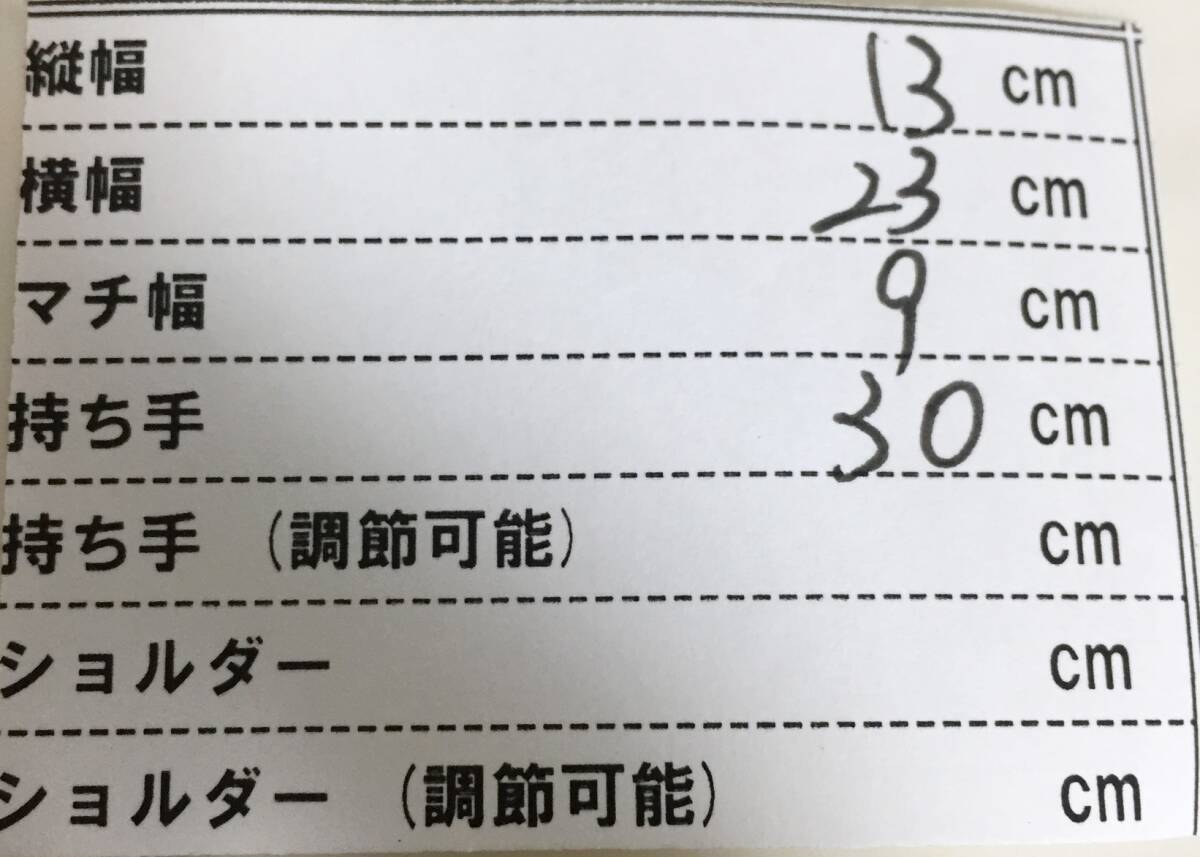 縦幅 13 cm
横幅 23 cm
マチ幅 9 cm
持ち手 30 cm
持ち手 (調節可能) cm
ショルダー cm
ショルダー (調節可能) cm